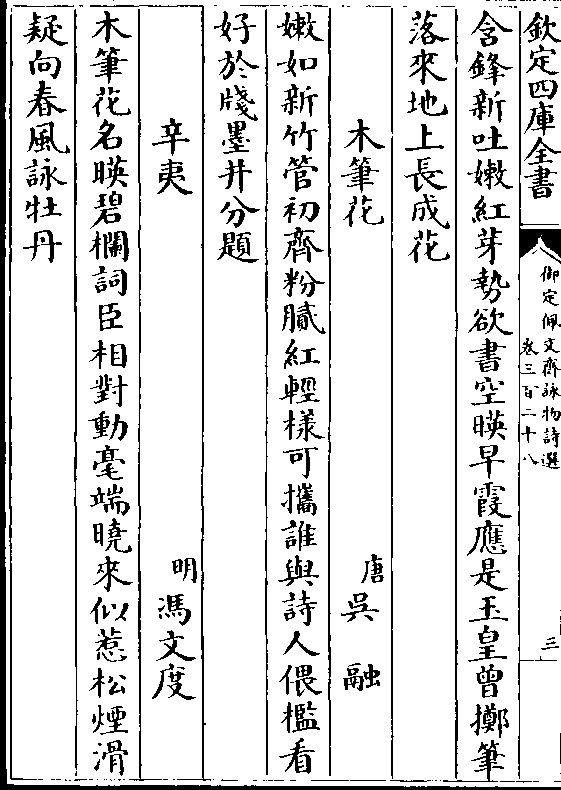 欽定四庫全書
御定佩文齋詠物詩選
卷三百二十八
三
含鋒新吐嫩紅芽勢欲書空暎早霞應是玉皇曾擲筆
落來地上長成花
木筆花
唐吳融
嫩如新竹管初齊粉膩紅輕様可攜誰與詩人偎檻看
好於牋墨井分題
辛夷
明馮文度
木筆花名暎碧欄詞臣相對動毫端曉來似惹松煙滑
疑向春風詠牡丹